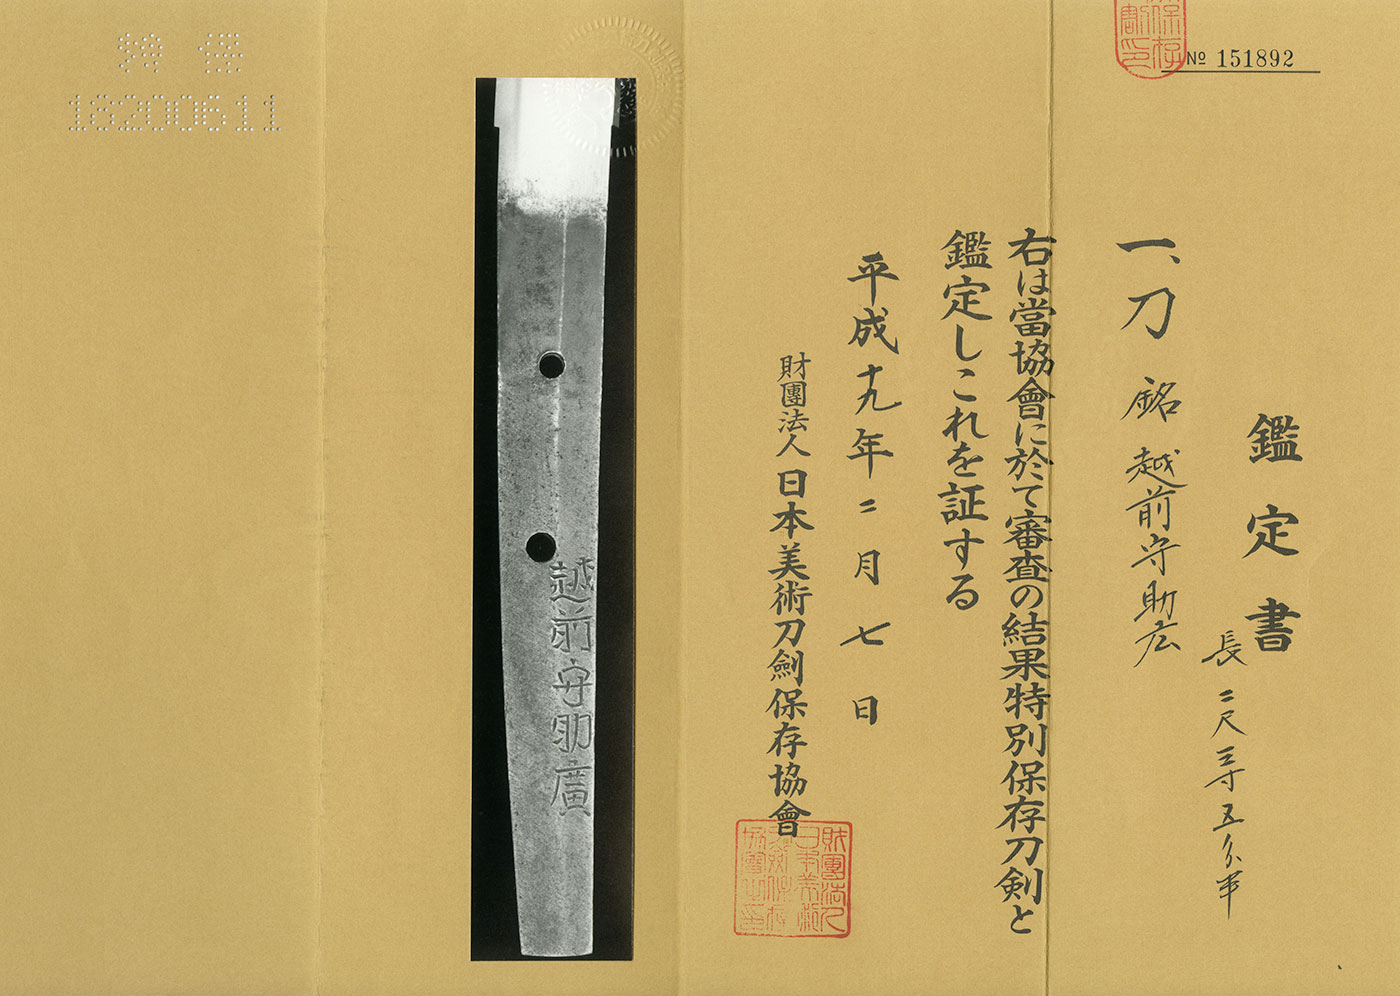 № 151892
鑑定書
一、刀 銘 越前守助広
長 二尺三寸五分半
右は當協會に於て審査の結果特別保存刀剣と
鑑定しこれを証する
平成十九年二月七日
財團法人 日本美術刀劍保存協會
越前守助廣
18200611